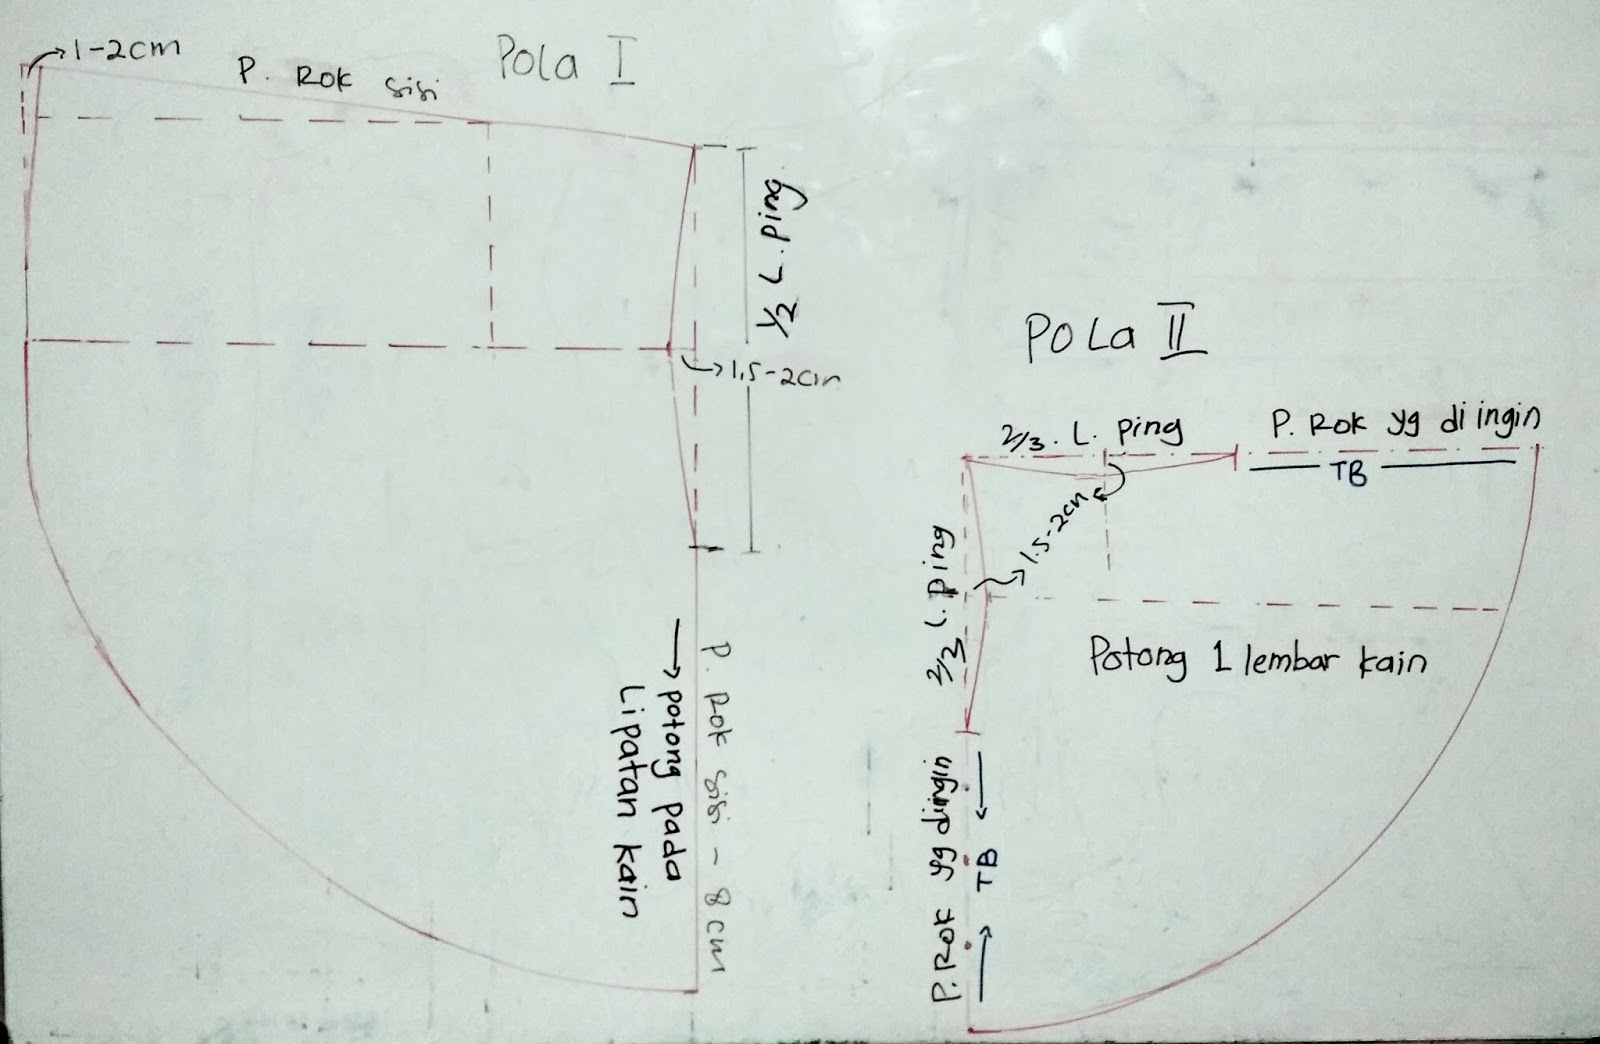 1-2cm
P. Rok sisi
Pola I
1/2 L. ping
1,5-2cm
P. Rok sisi - 8cm
potong pada
Lipatan kain
POLa II
2/3. L. ping
P. Rok yg di ingin
TB
1.5-2cm
2/3 L. ping
Potong 1 lembar kain
P. Rok yg diingin
TB